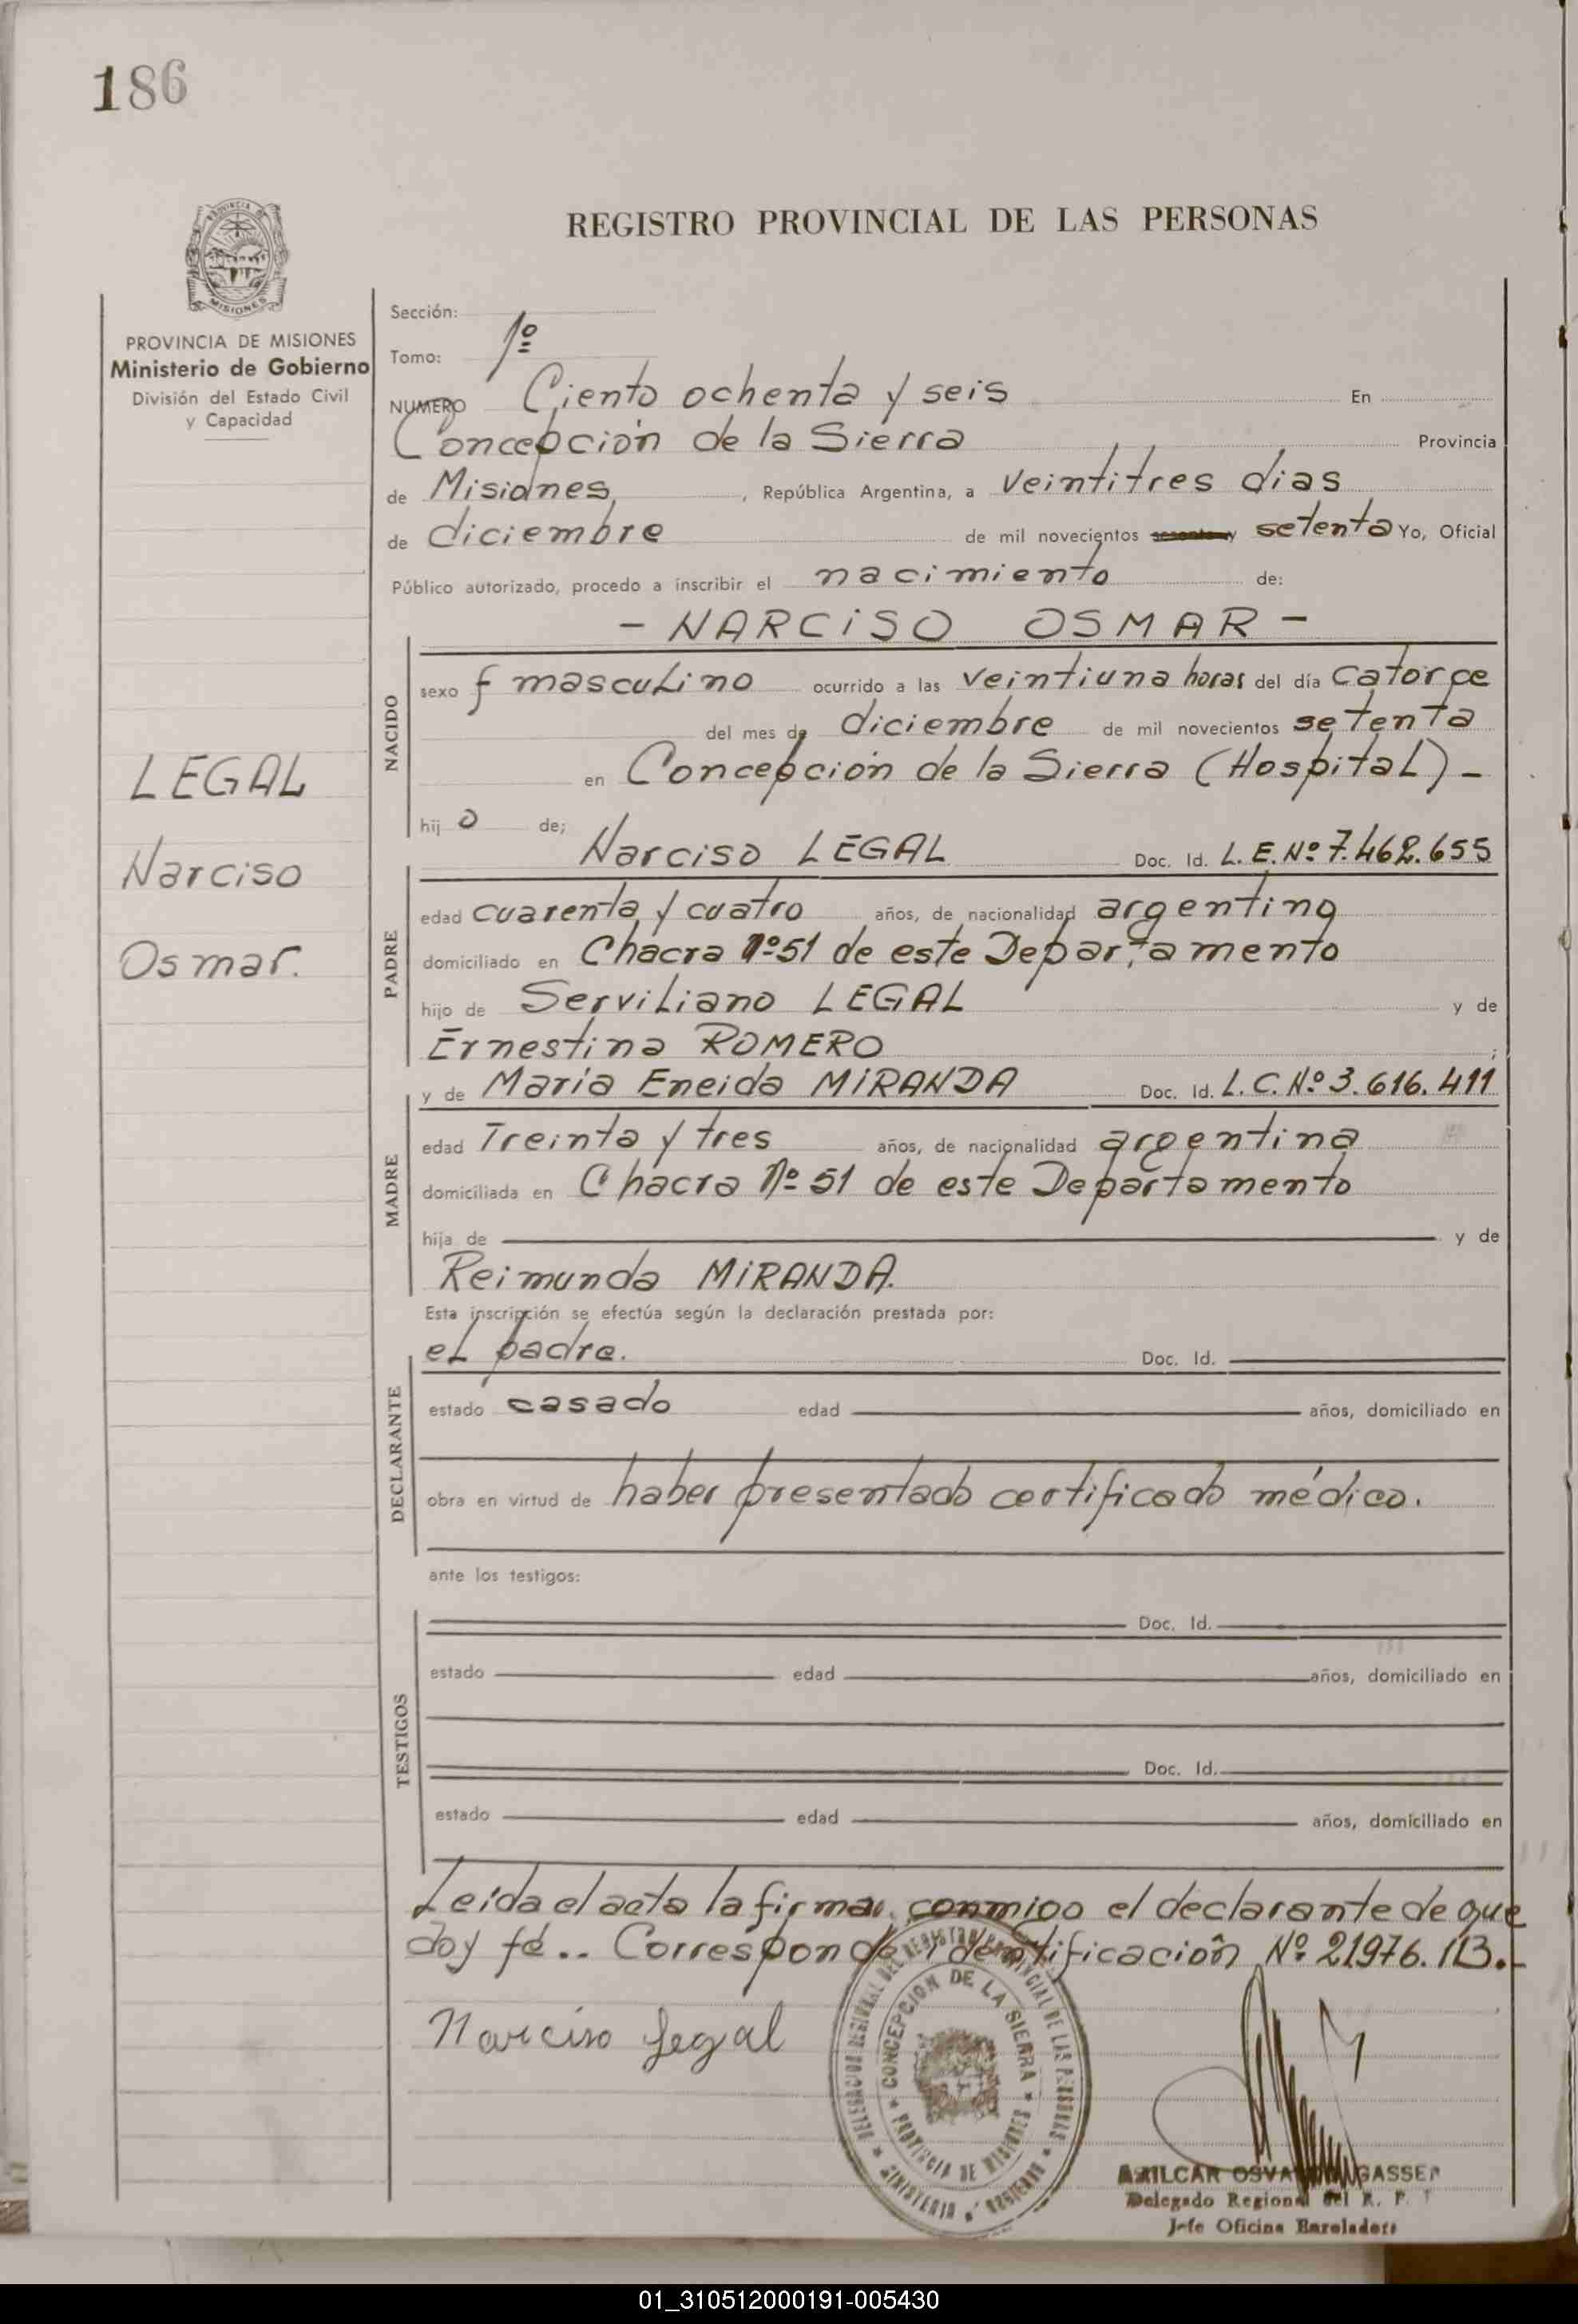 186
REGISTRO PROVINCIAL DE LAS PERSONAS
MISIONES
PROVINCIA DE MISIONES
Ministerio de Gobierno
División del Estado Civil
y Capacidad
LEGAL
Narciso
Osmar.
Sección:
Tomo: 1º
NUMERO Ciento ochenta y seis En
Concepción de la Sierra Provincia
de Misiones, , República Argentina, a veintitres dias
de diciembre de mil novecientos sesenta y setenta Yo, Oficial
Público autorizado, procedo a inscribir el nacimiento de:
- NARCISO OSMAR -
NACIDO
sexo f masculino ocurrido a las veintiuna horas del día catorce
del mes de diciembre de mil novecientos setenta
en Concepción de la Sierra (Hospital) -
hij o de;
Narciso LEGAL Doc. Id. L.E.Nº 7.462.655
PADRE
edad cuarenta y cuatro años, de nacionalidad argentino
domiciliado en Chacra Nº 51 de este Departamento
hijo de Serviliano LEGAL y de
Ernestina ROMERO ;
y de María Eneida MIRANDA Doc. Id. L.C.Nº 3.616.411
MADRE
edad Treinta y tres años, de nacionalidad argentina
domiciliada en Chacra Nº 51 de este Departamento
hija de y de
Reimunda MIRANDA.
Esta inscripción se efectúa según la declaración prestada por:
el padre. Doc. Id.
DECLARANTE
estado casado edad años, domiciliado en
obra en virtud de haber presentado certificado médico.
ante los testigos:
TESTIGOS
Doc. Id.
estado edad años, domiciliado en
Doc. Id.
estado edad años, domiciliado en
Leida el acta la firma conmigo el declarante de que
doy fé.. Corresponde identificación Nº 21976.113.-
Narciso Legal
CONCEPCION DE LA SIERRA * PROVINCIA DE MISIONES *
DELEGACION REGIONAL DEL REGISTRO PROVINCIAL DE LAS PERSONAS * MINISTERIO GOBIERNO *
Delegado Regional del R. P.
Jefe Oficina
01_310512000191-005430